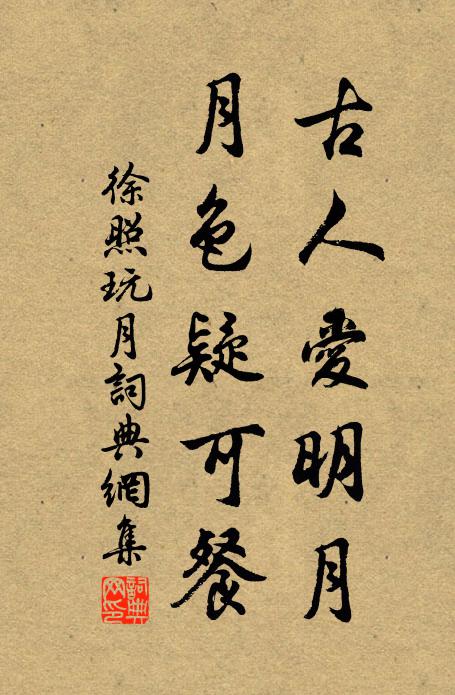 古人愛明月
月色疑可餐
徐照玩月詞典網集
詞典
网印